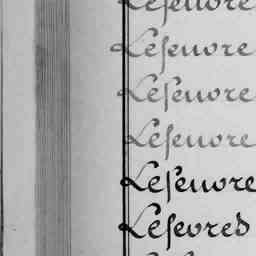 Leſeuore
Leſeuore
Leſeuore
Leſeuore
Leſeuore
Leſevred